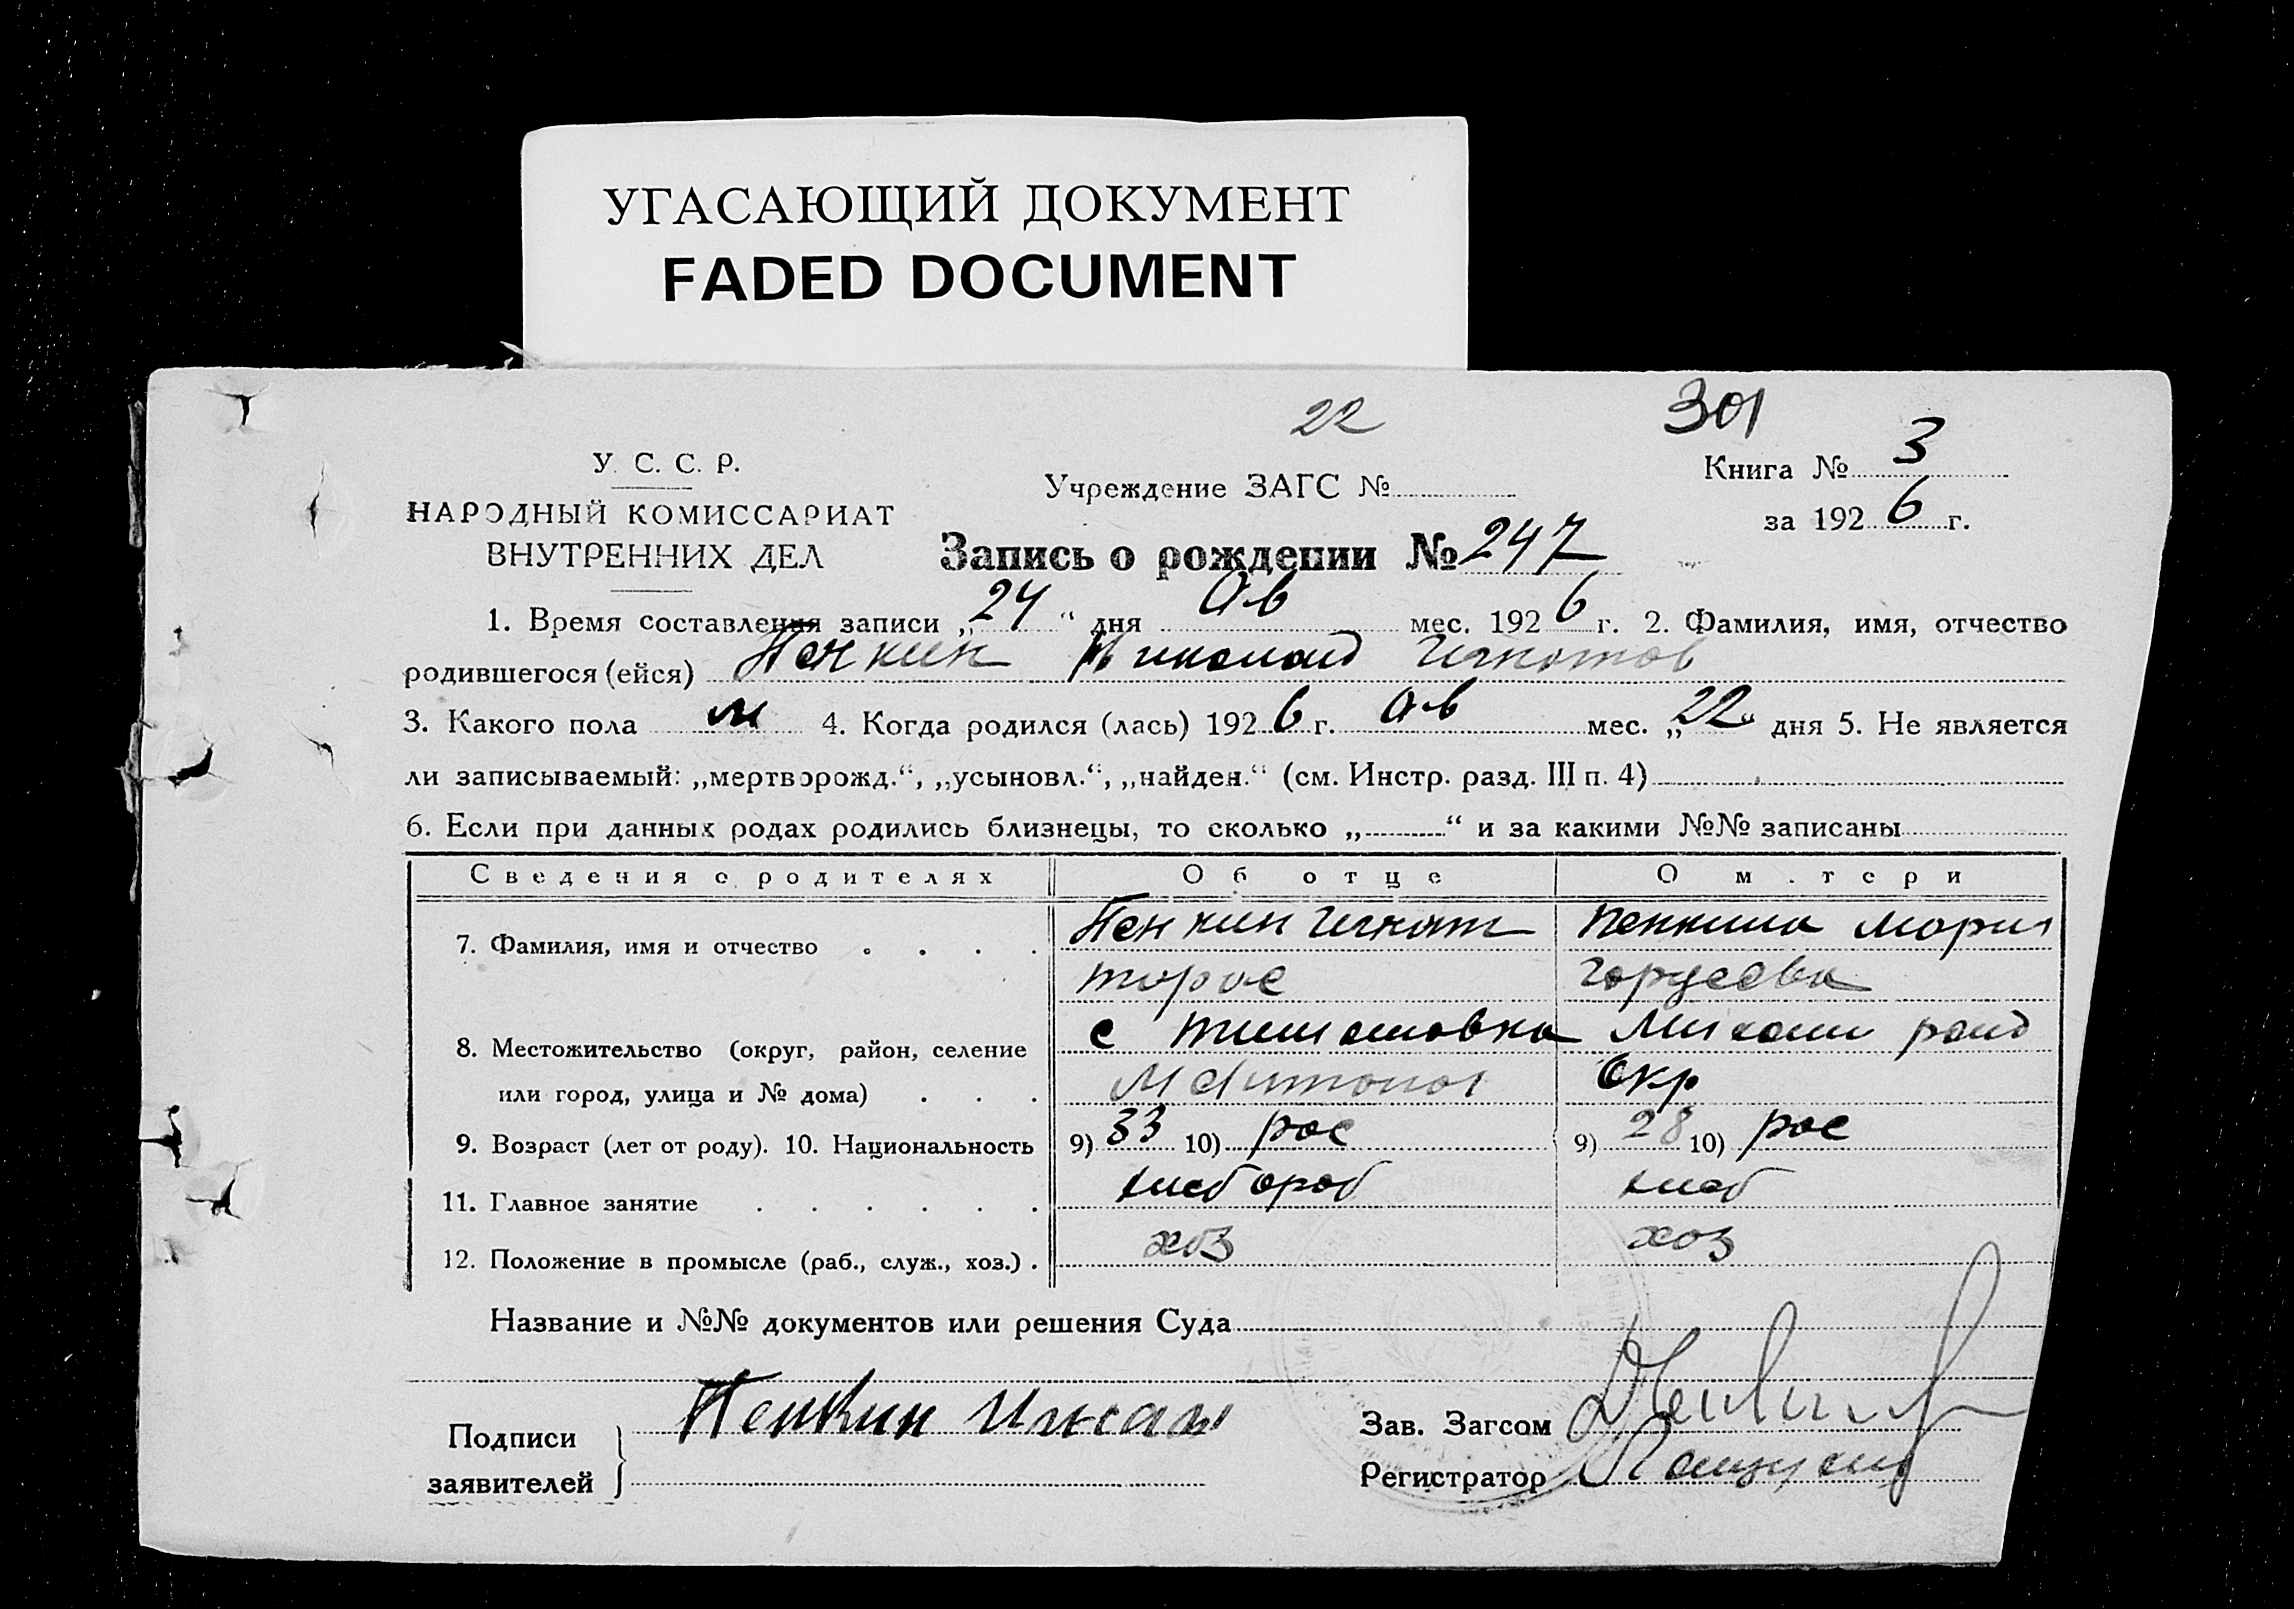 УГАСАЮЩИЙ ДОКУМЕНТ
FADED DOCUMENT
22
301
У. С. С. Р.
НАРОДНЫЙ КОМИССАРИАТ
ВНУТРЕННИХ ДЕЛ
Учреждение ЗАГС №
Книга № 3
за 1926 г.
Запись о рождении № 247
1. Время составления записи „24“ дня Ав мес. 1926 г. 2. Фамилия, имя, отчество
родившегося (ейся) Пенкин Николай Игнатов
3. Какого пола м 4. Когда родился (лась) 1926 г. Ав мес. „22“ дня 5. Не является
ли записываемый: „мертворожд.“, „усыновл.“, „найден.“ (см. Инстр. разд. III п. 4)
6. Если при данных родах родились близнецы, то сколько „ “ и за какими №№ записаны
Сведения о родителях Об отце О матери
7. Фамилия, имя и отчество Пенкин Игнат Пенкина Мария
Тарас Гордеевна
8. Местожительство (округ, район, селение с Тимошовка Михайл район
или город, улица и № дома) Мелитопол Окр
9. Возраст (лет от роду). 10. Национальность 9) 33 10) рос 9) 28 10) рос
11. Главное занятие хлебороб хлеб
12. Положение в промысле (раб., служ., хоз.) хоз хоз
Название и №№ документов или решения Суда
Подписи заявителей } Пенкин Игнат
Зав. Загсом
Регистратор